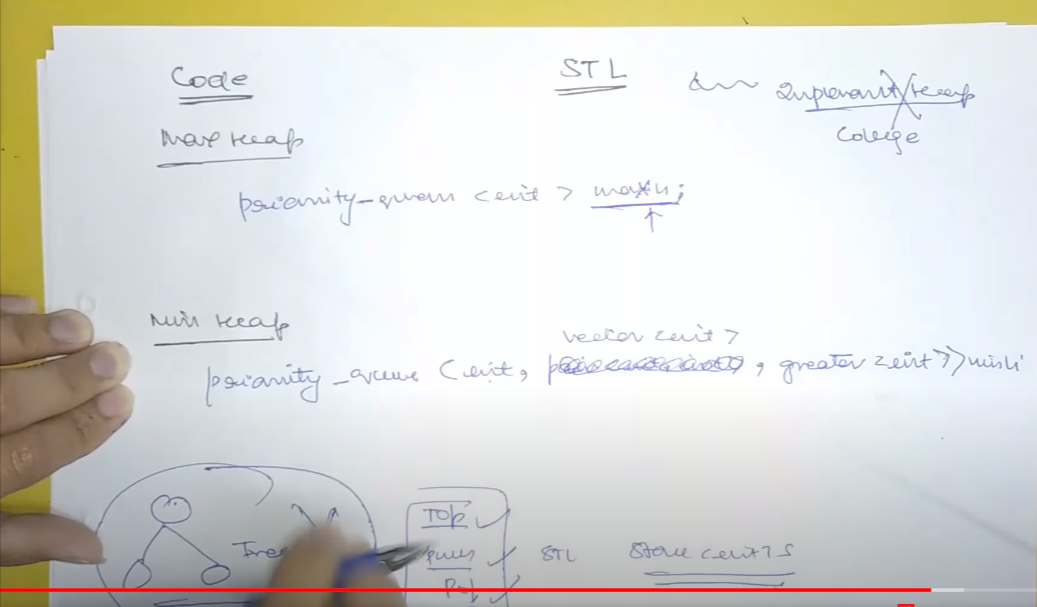 Code
STL
Implement Heap
College
Max Heap
priority_queue <int> maxh;
Min Heap
vector <int>
priority_queue <int, , greater <int>> minh;
Tree
Top
push
Pop
STL
Stack <int> s